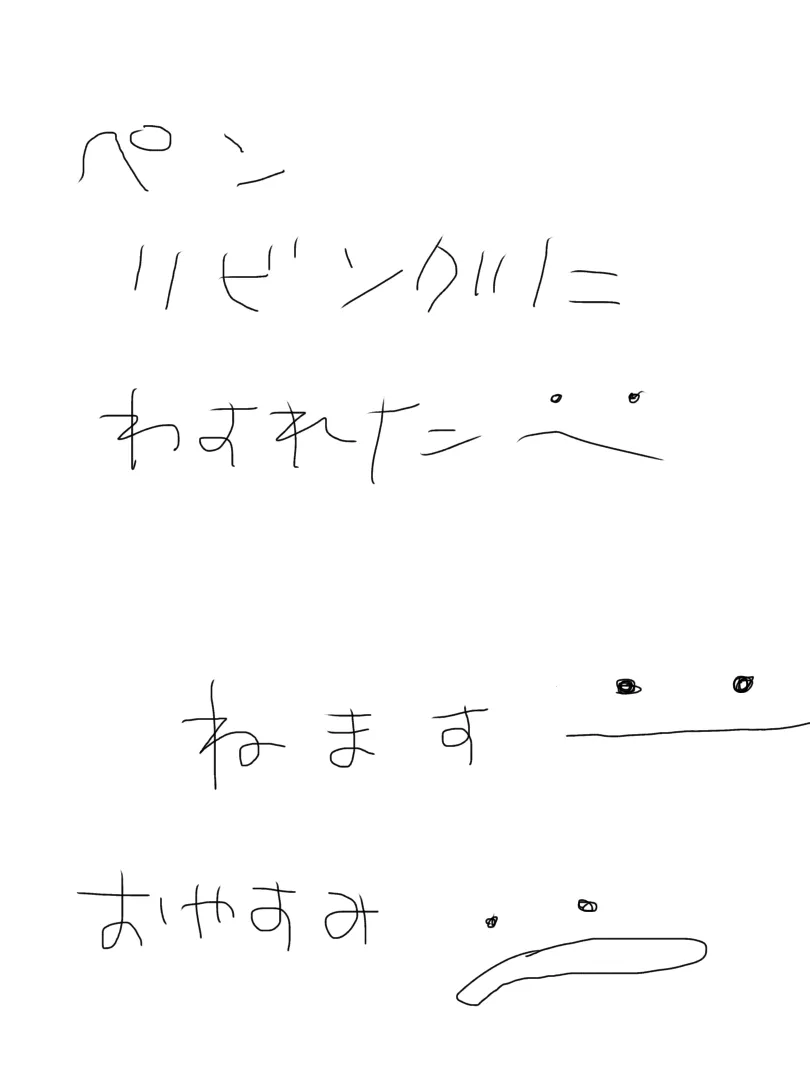 ペン
リビングに
わすれた
ねます
おやすみ